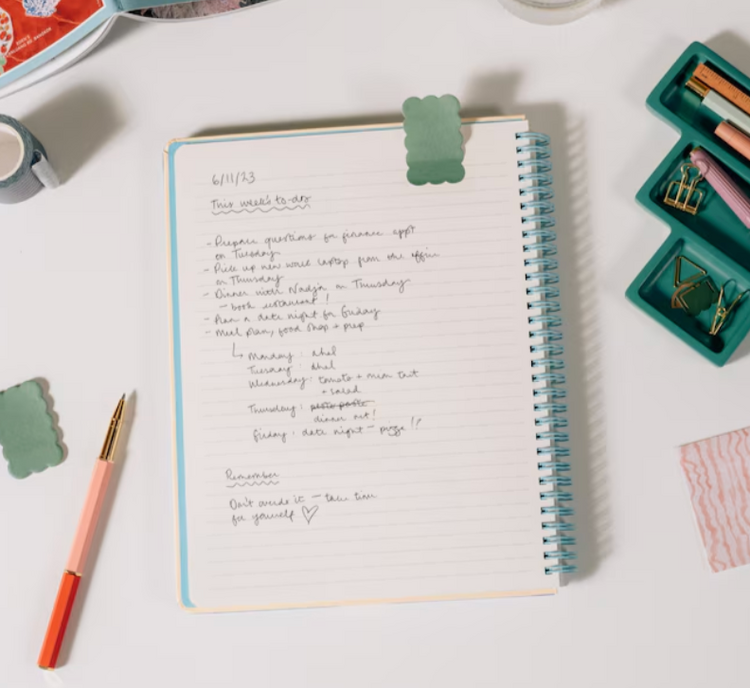 6/11/23
This week's to-do
- Prepare questions for finance appt
on Tuesday
- Pick up new work laptop from the office
on Thursday
- Dinner with Nadja on Thursday
- book restaurant!
- Plan a date night for Friday
- Meal plan, food shop + prep
Monday: dhal
Tuesday: dhal
Wednesday: tomato + tart
+ salad
Thursday: pesto pasta
dinner out!
Friday: date night - !?
Remember
Don't overdo it - take time
for yourself ♡